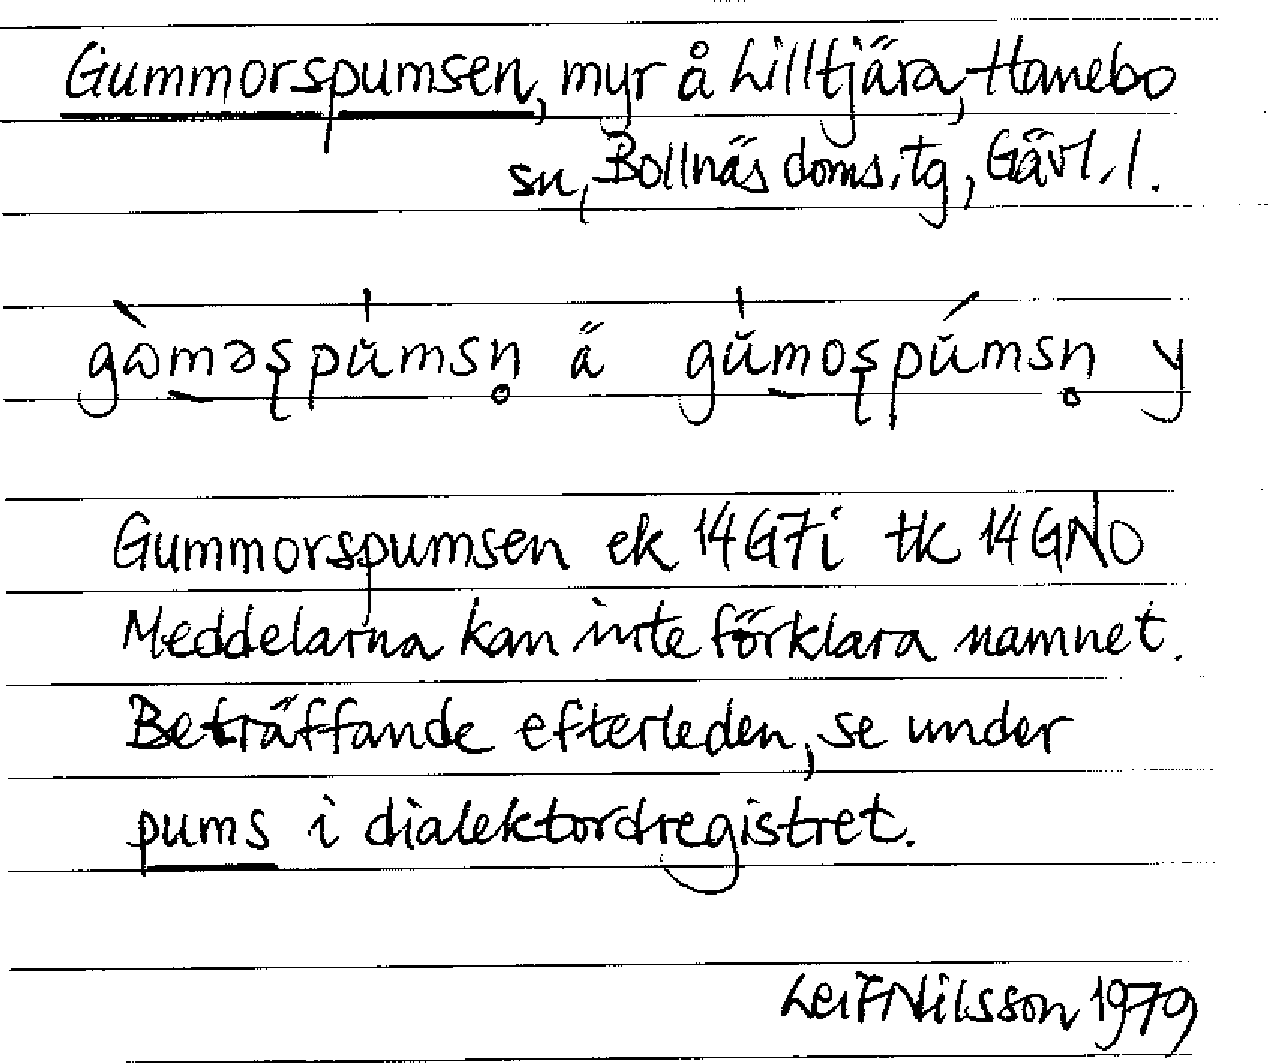 Gummorspumsen, myr å Lilltjära, Hanebo
sn, Bollnäs doms. tg, Gävl. l.
gɷ̀məʂpŭmsn̥ ä gŭmoʂpŭ́msn̥ y
Gummorspumsen ek 14G7i tk 14GNO
Meddelarna kan inte förklara namnet.
Beträffande efterleden, se under
pums i dialektordregistret.
Leif Nilsson 1979